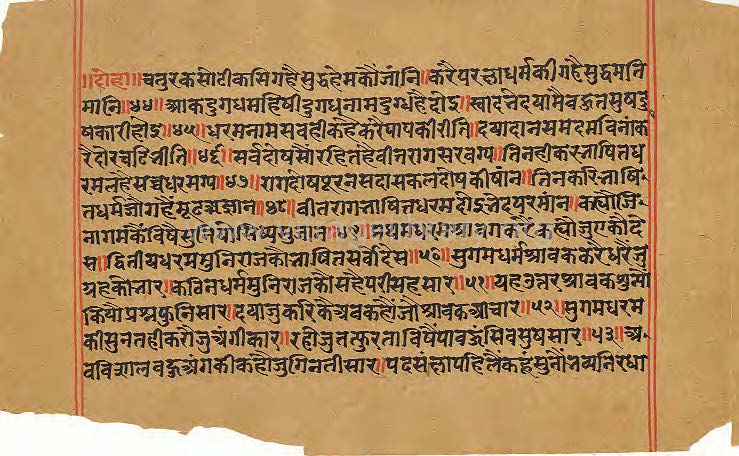 ॥दोहा॥ चतुर कसोटी कसि गहै सुद्ध हेम कौं जांनि॥ करै परछा धर्म की गहै सुद्ध मनि
मानि॥४४॥ आक दुगध महिषी दुगध नाम दुगध है दोइ॥ स्वाद भेद यामै बहुत सुष दु
षकारी होइ॥४५॥ धरम नाम सब ही कहै करै पाप की रीति॥ दया दान सम दम विनां क
रै दोर चटि नीति॥४६॥ सर्व दोष सौं रहित है वीतराग सरवग्य॥ तिनही कर भाषित ध
रम लहै सच धरमग्य॥४७॥ राग दोष पूरन सदा सकल दोष की षांन॥ तिन करि भाषि
त धर्म जो गहै मूढ अज्ञान॥४८॥ वीतराग भाषित धरम दोइ भेद परमांन॥ कह्यौ जि
नागम कै विषै सुनि सिष्य सुजान॥४९॥ प्रथम धरम श्रावग करै कह्यौ जु एकोदे
स॥ द्वितीय धरम मुनिराज कौ भाषित सर्वादेस॥५०॥ सुगम धर्म श्रावक करै धरै जु
ग्रह कौ भार॥ कठिन धर्म मुनिराज कौ सहै परीसह सार॥५१॥ यह उत्तर श्रावक सु
कियौ प्रश्न फुनि सार॥ दया जु करि कै अब कहौ जो श्रावक आचार॥५२॥ सुगम धरम
की सुनत ही करौ जु अंगीकार॥ रही जु तत्पुरता विषैं पावहुं सिव सुष सार॥५३॥ अ
ब विसाल बहु अंग की कहौ जु गिनती सार॥ पद संख्या पहिलै कहूं सुनौ भव्य निरधा